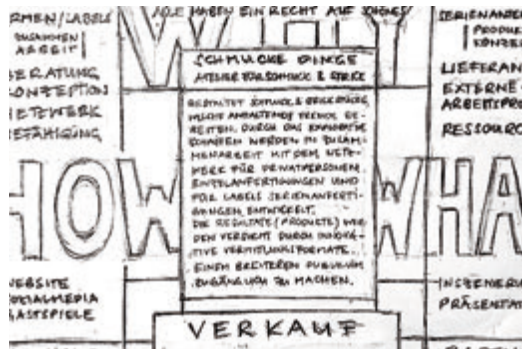 RMEN/LABELS
ZUSAMMEN
ARBEIT
ERATUNG
ONZEPTION
ETZWERK
EFÄHIGUNG
ALLE HABEN EIN RECHT AUF SCHÖNES
WHY
SCHMUCKE DINGE
ATELIER FÜR SCHMUCK & STRICK
GESTALTET SCHMUCK & STRICKSTÜCKE,
WELCHE ANHALTENDE FREUDE BE-
REITEN. DURCH DAS
SCHAFFEN WERDEN IN ZUSAM-
MENARBEIT MIT DEM NETZ-
WERK FÜR PRIVATPERSONEN
EINZELANFERTIGUNGEN UND
FÜR LABELS SERIENANFERTI-
GUNGEN ENTWICKELT.
DIE RESULTATE (PRODUKTE) WER
DEN VERDICHT DURCH INNOVA-
TIVE VERMITTLUNGSFORMATE
EINEM BREITEREN PUBLIKUM
ZUGÄNGLICH ZU MACHEN.
SERIENANFE
PRODUK
KONZEP
LIEFERAN
EXTERNE
ARBEITSPRO
RESSOURC
HOW
WHA
WEBSITE
OZIALMEDIA
ASTSPIELE
INSZENIERU
PRÄSENTAT
VERKAUF